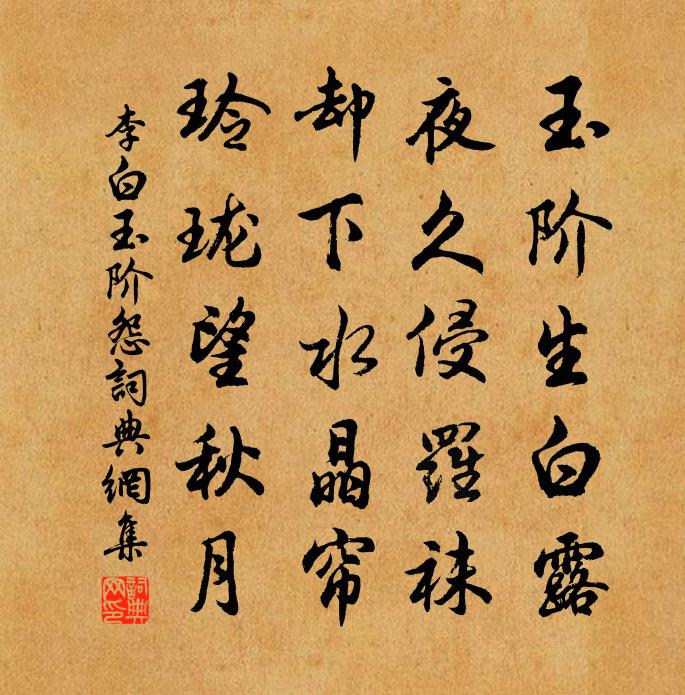 玉阶生白露
夜久侵羅袜
却下水晶帘
玲珑望秋月
李白玉阶怨詞典網集
詞典網印